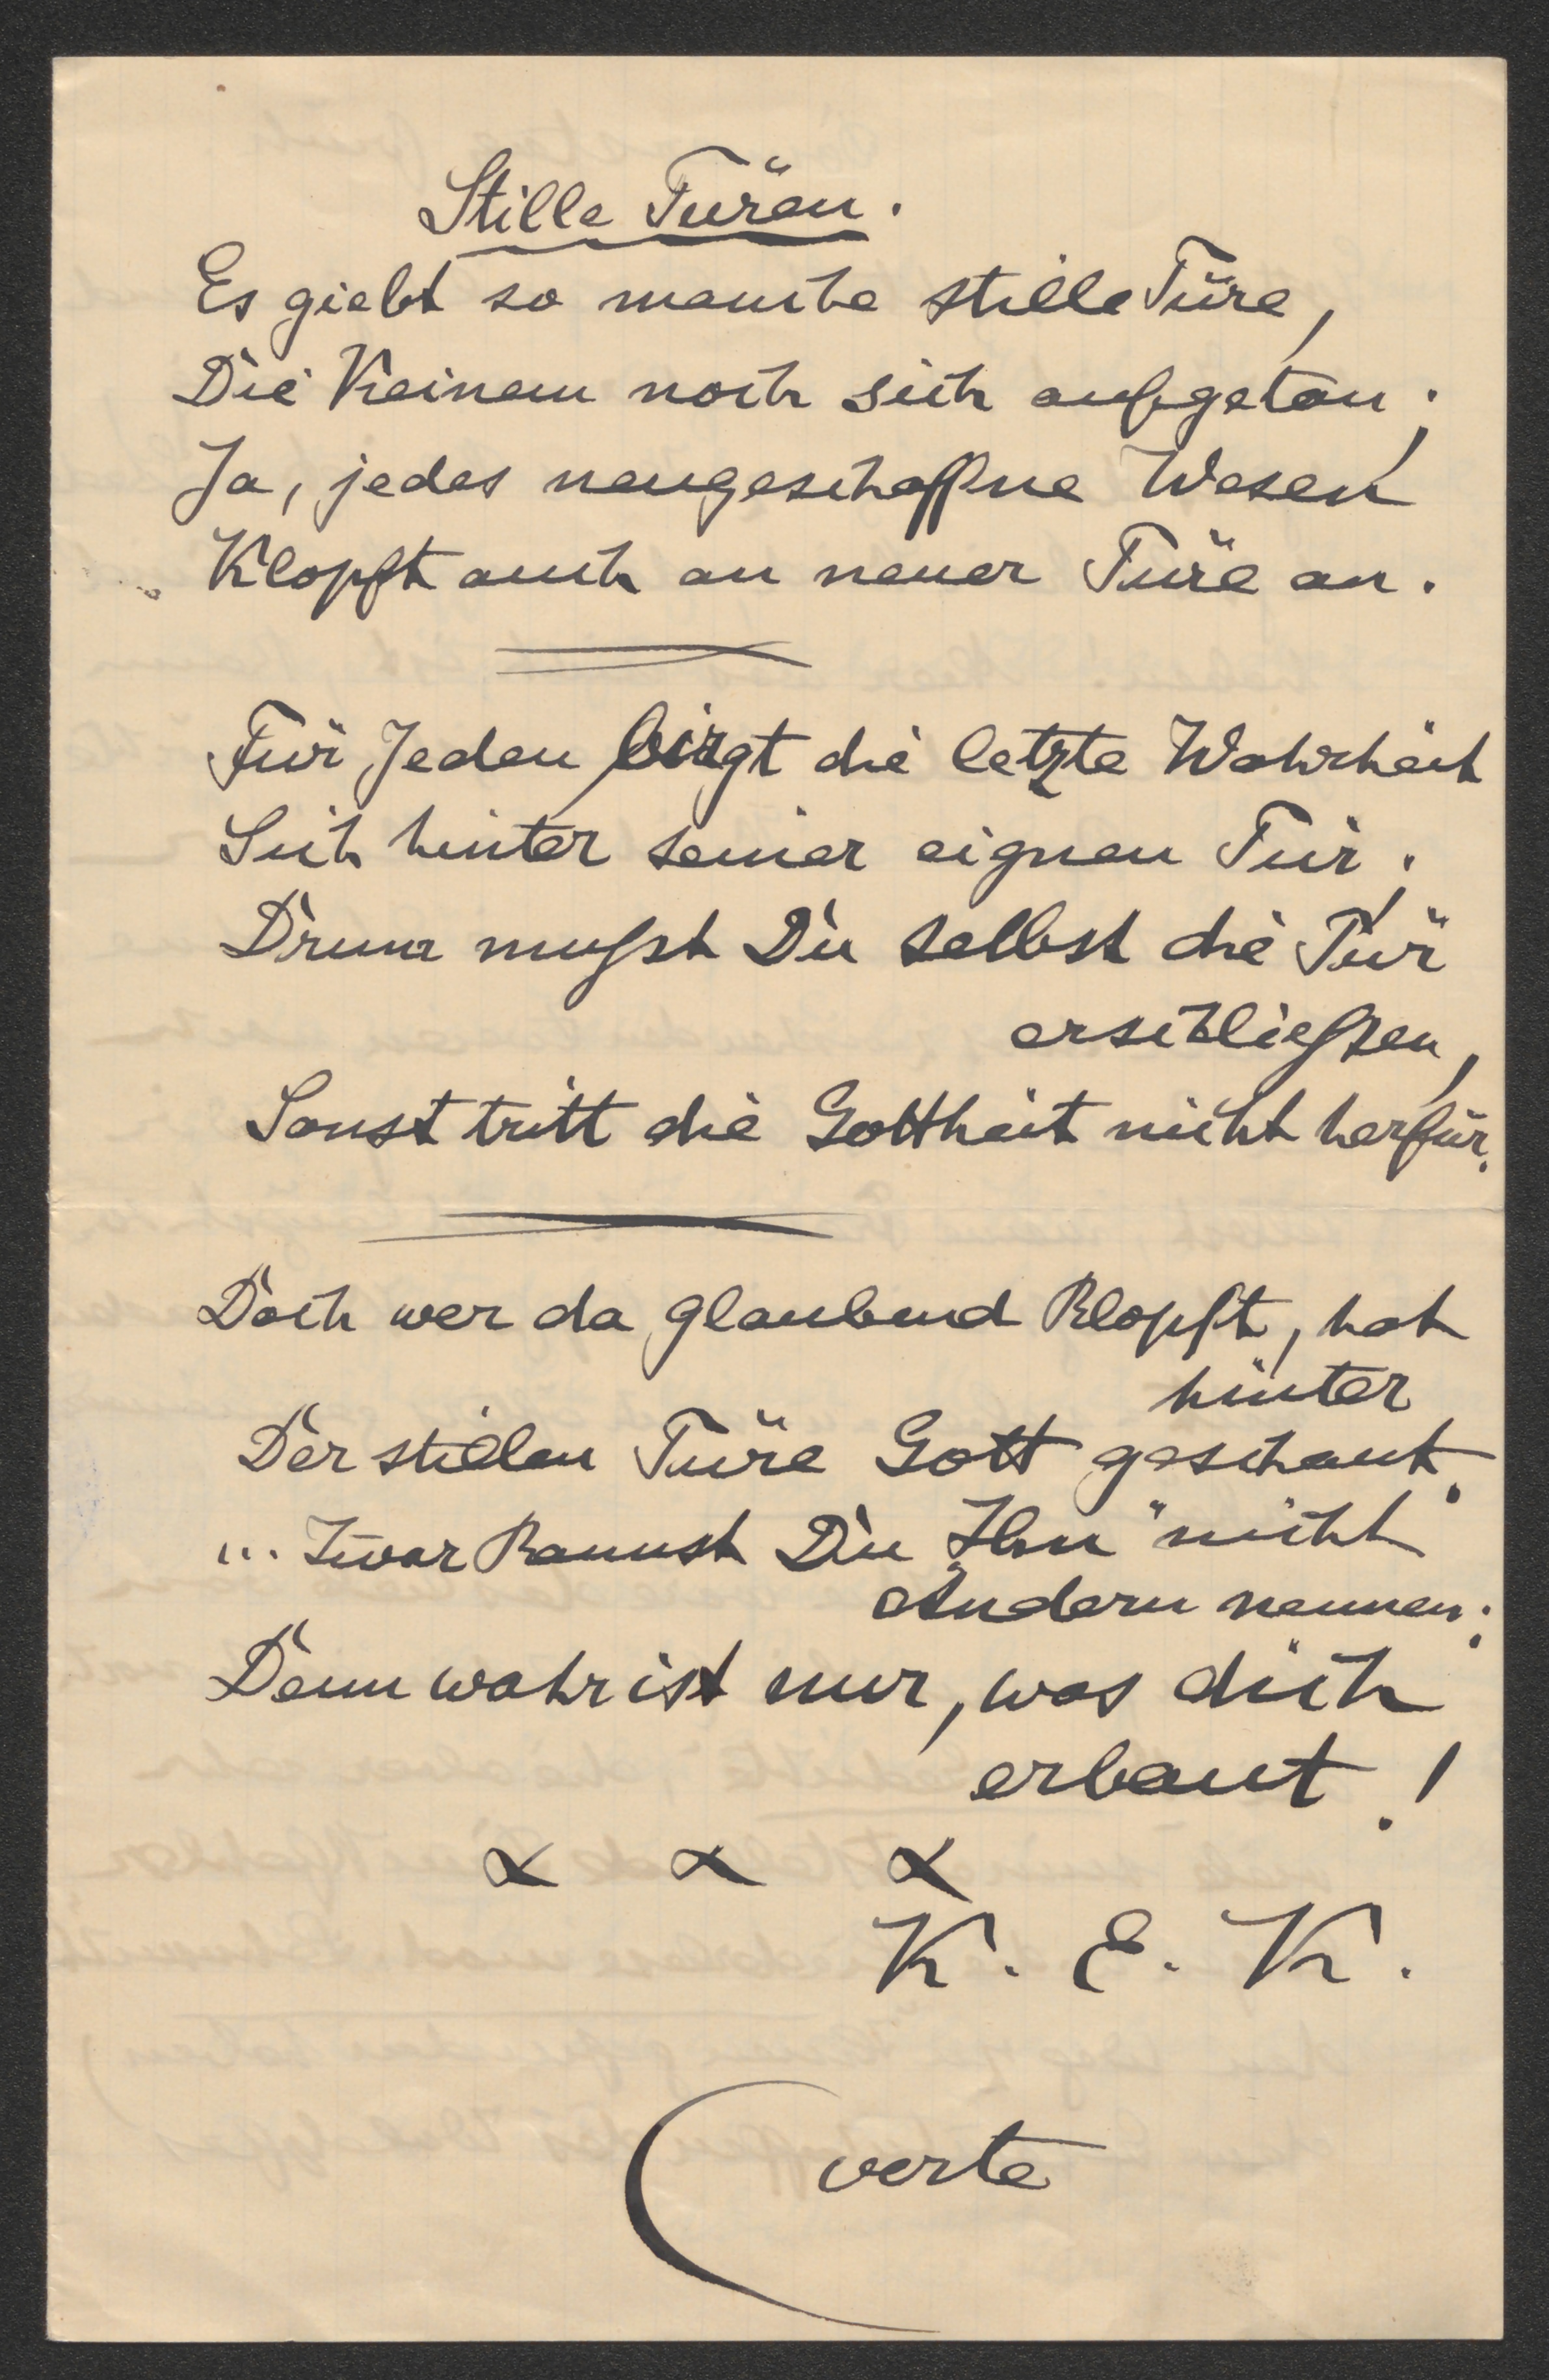 Stille Türen.
Es giebt so manche stille Türe,
Die Keinem noch sich aufgetan;
Ja, jedes neugeschaffne Wesen
Klopft auch an neuer Türe an.
Für Jeden birgt die letzte Wahrheit
Sich hinter seiner eignen Tür;
Drum mußt Du selbst die Tür
erschließen,
Sonst tritt die Gottheit nicht herfür.
Doch wer da glaubend klopft, hat
hinter
Der stillen Türe Gott geschaut.
... Zwar kannst Du „Ihn" nicht
Andern nennen;
Denn wahr ist nur, was dich
erbaut!
x x x
K. E. K.
verte